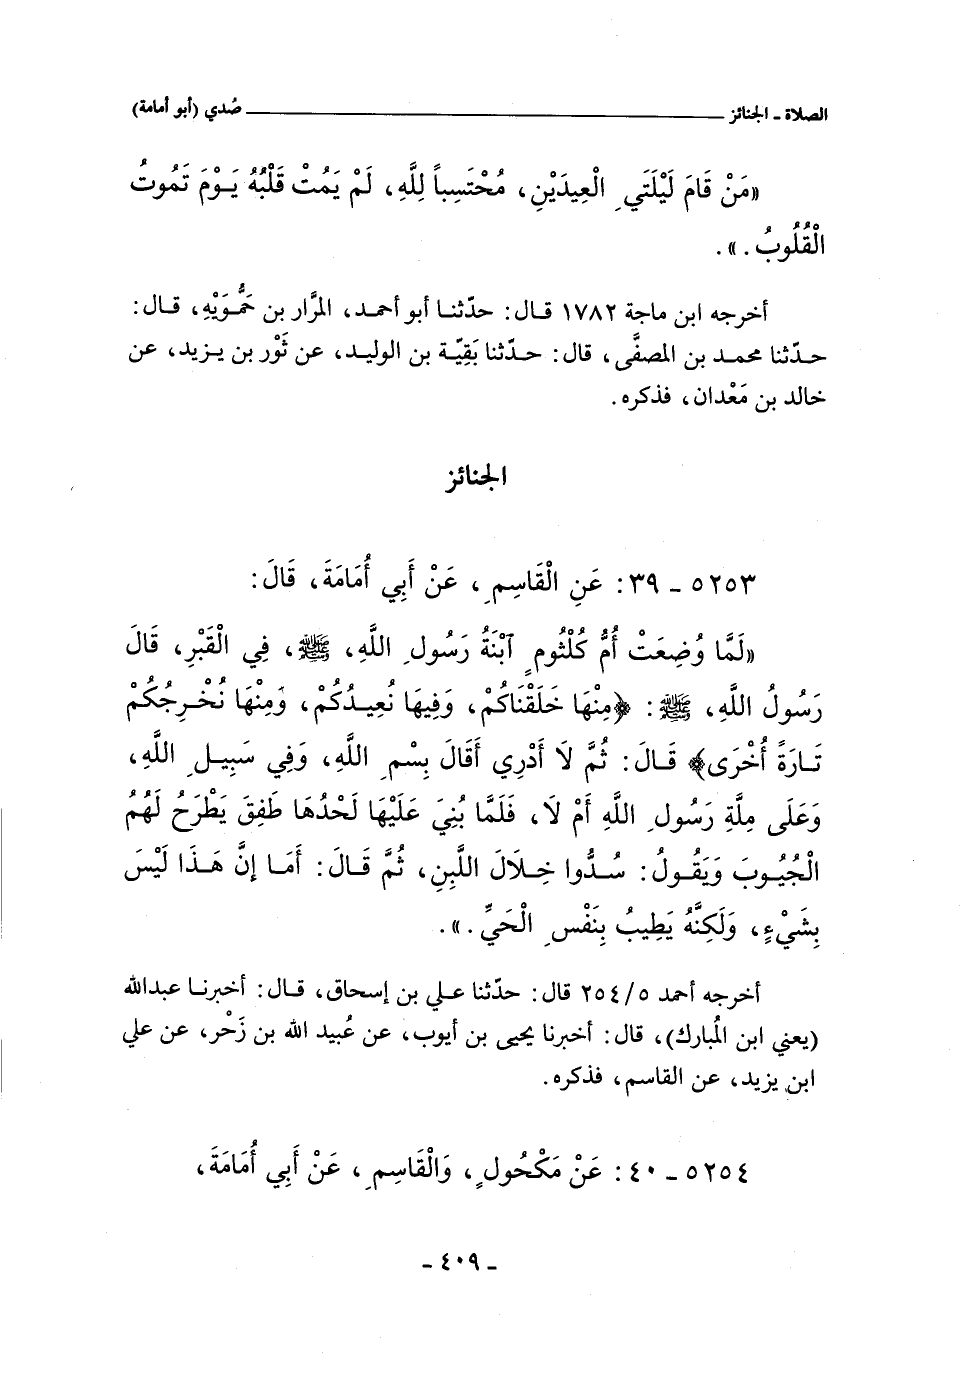 الصلاة - الجنائز ــــــــــ صُدي (أبو أمامة)
«مَنْ قَامَ لَيْلَتَيِ الْعِيدَيْنِ، مُحْتَسِباً لِلَّهِ، لَمْ يَمُتْ قَلْبُهُ يَوْمَ تَمُوتُ
الْقُلُوبُ.».
أخرجه ابن ماجة ١٧٨٢ قال: حدّثنا أبو أحمد، المرَّار بن حَمُّويْهِ، قال:
حدّثنا محمد بن المصفَّى، قال: حدّثنا بَقِيّة بن الوليد، عن ثَوْر بن يزيد، عن
خالد بن مَعْدان، فذكره.
الجنائز
٥٢٥٣ - ٣٩: عَنِ الْقَاسِمِ، عَنْ أَبِي أُمَامَةَ، قَالَ:
«لَمَّا وُضِعَتْ أُمُّ كُلْثُومٍ ٱبْنَةُ رَسُولِ اللَّهِ، ﷺ، فِي الْقَبْرِ، قَالَ
رَسُولُ اللَّهِ، ﷺ: ﴿مِنْهَا خَلَقْنَاكُمْ، وَفِيهَا نُعِيدُكُمْ، وَمِنْهَا نُخْرِجُكُمْ
تَارَةً أُخْرَى﴾ قَالَ: ثُمَّ لَا أَدْرِي أَقَالَ بِسْمِ اللَّهِ، وَفِي سَبِيلِ اللَّهِ،
وَعَلَى مِلَّةِ رَسُولِ اللَّهِ أَمْ لَا، فَلَمَّا بُنِيَ عَلَيْهَا لَحْدُهَا طَفِقَ يَطْرَحُ لَهُمُ
الْجُيُوبَ وَيَقُولُ: سُدُّوا خِلَالَ اللَّبِنِ، ثُمَّ قَالَ: أَمَا إِنَّ هَذَا لَيْسَ
بِشَيْءٍ، وَلَكِنَّهُ يَطِيبُ بِنَفْسِ الْحَيِّ.».
أخرجه أحمد ٢٥٤/٥ قال: حدّثنا علي بن إسحاق، قال: أخبرنا عبدالله
(يعني ابن المُبارك)، قال: أخبرنا يحيى بن أيوب، عن عُبيد الله بن زَحْر، عن علي
ابن يزيد، عن القاسم، فذكره.
٥٢٥٤ - ٤٠: عَنْ مَكْحُولٍ، وَالْقَاسِمِ، عَنْ أَبِي أُمَامَةَ،
- ٤٠٩ -